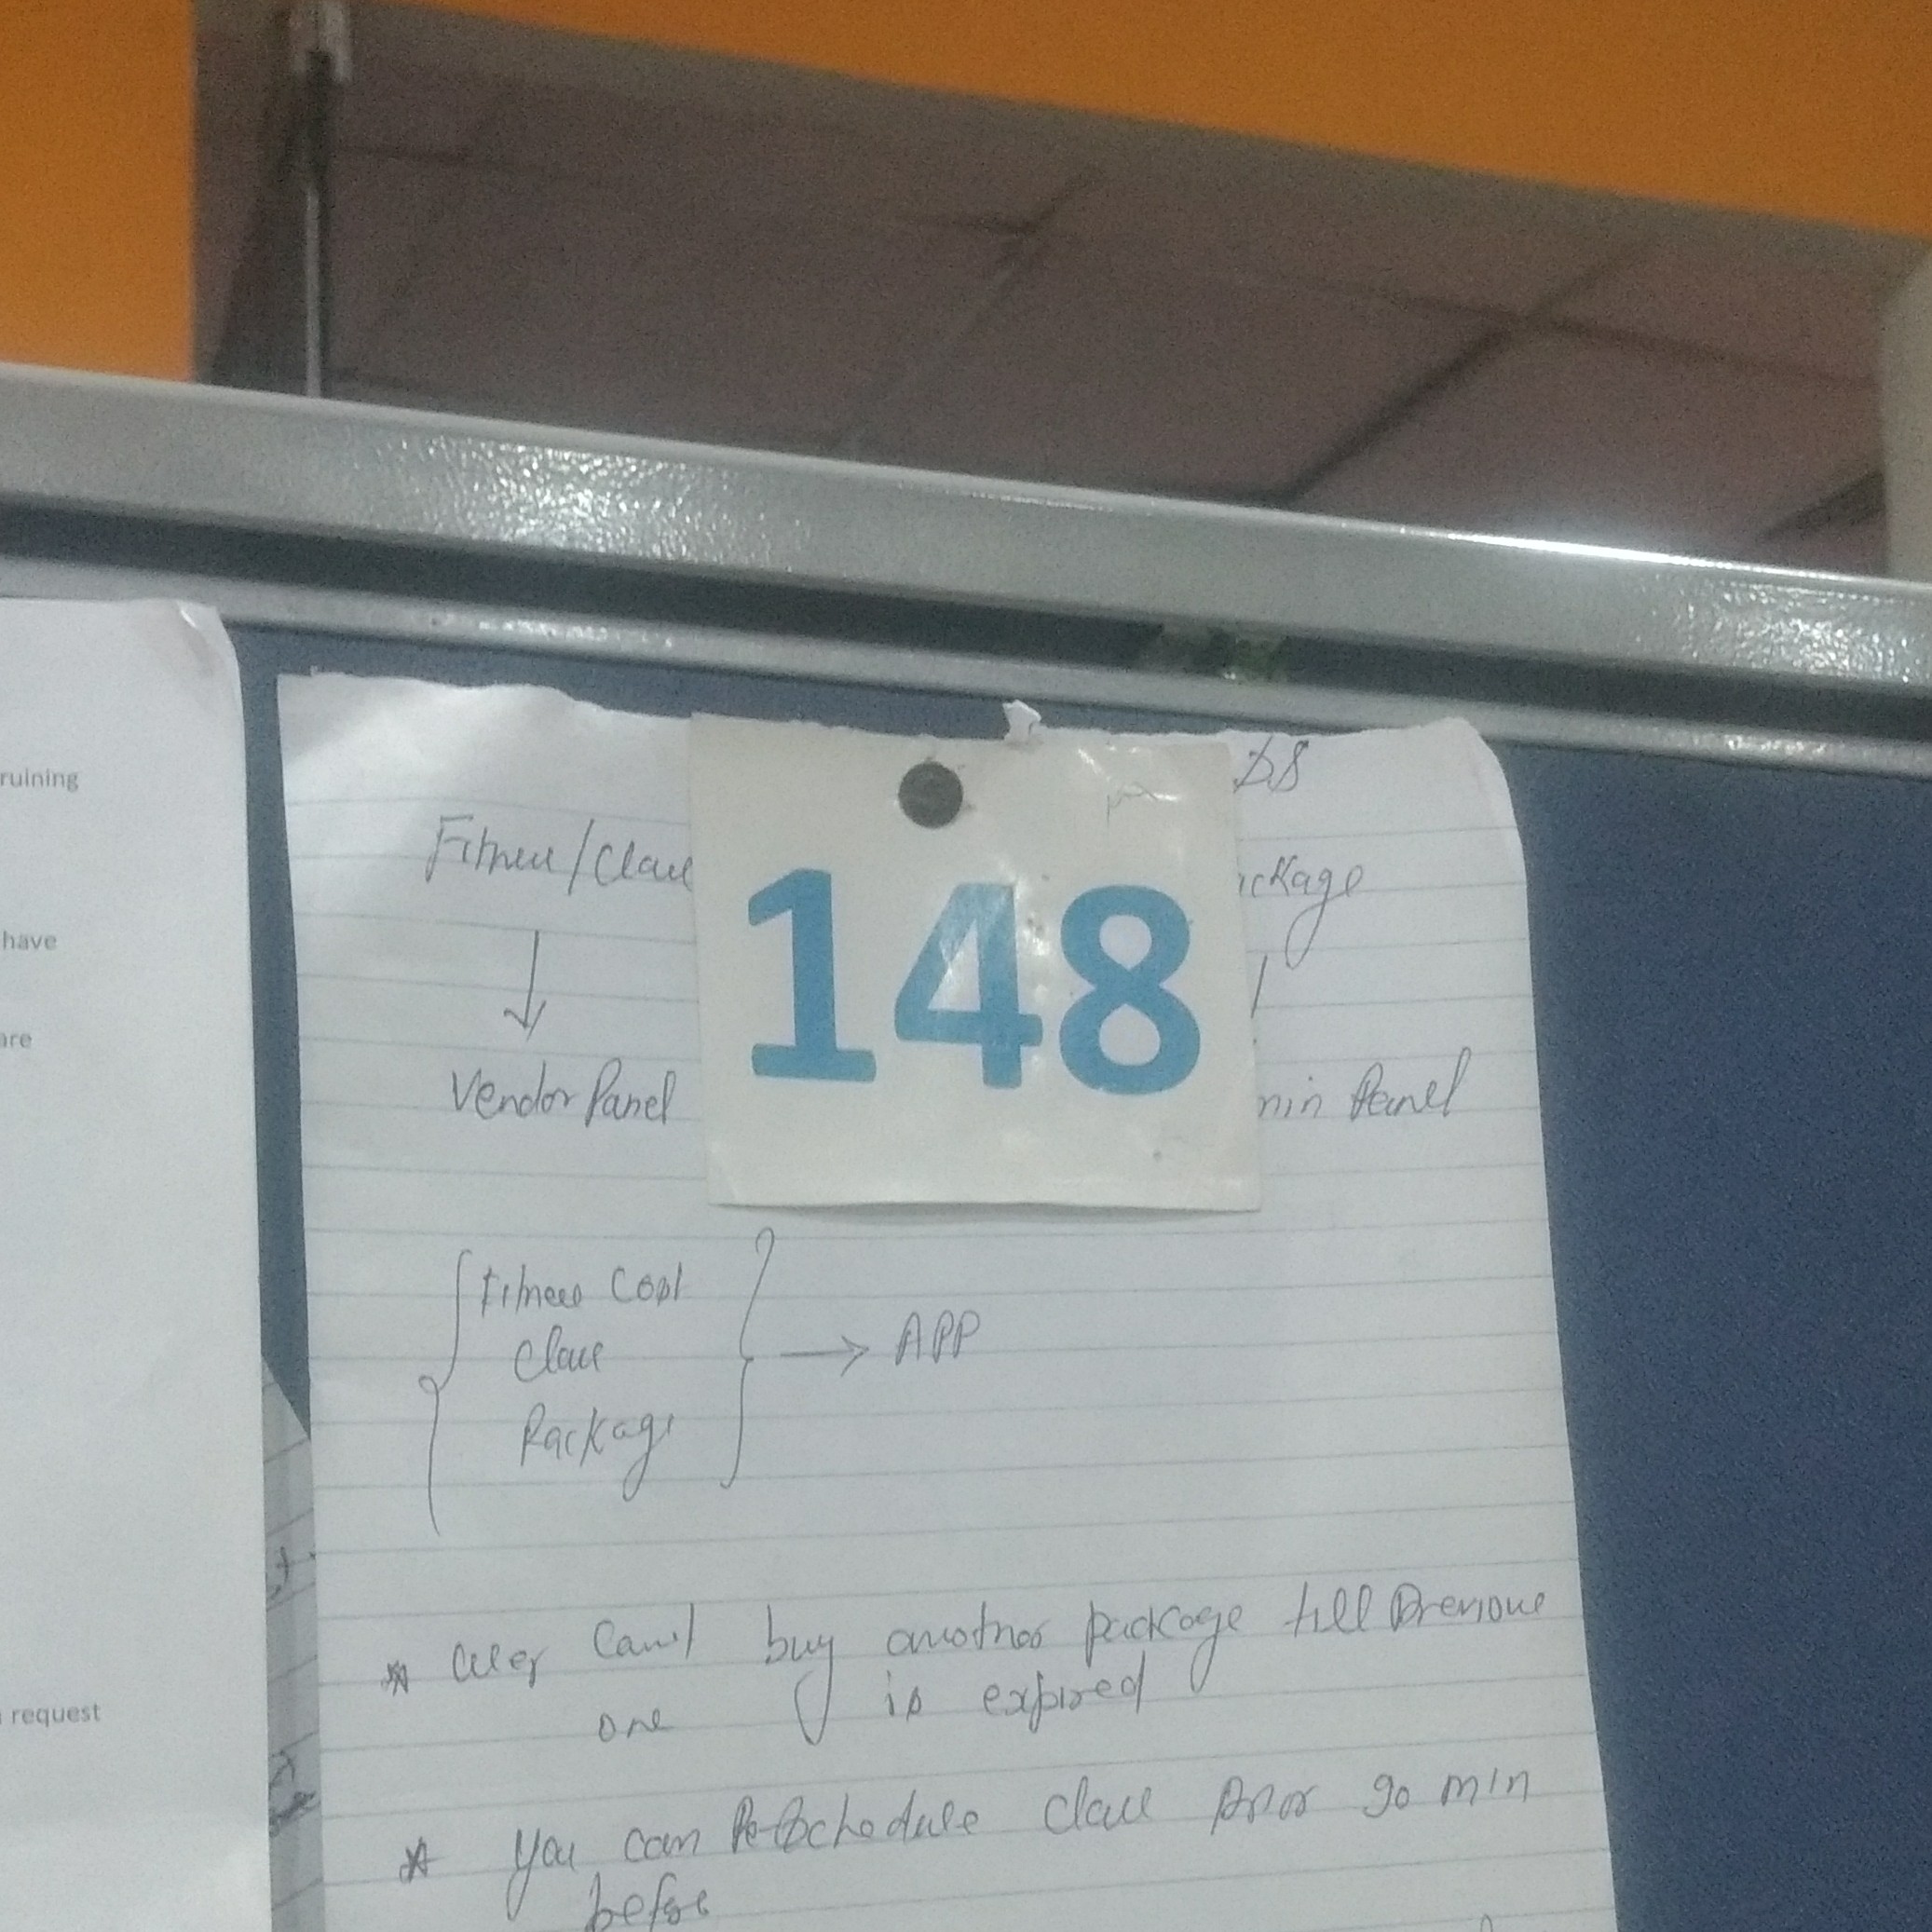 ruining
have
are
request
148
Fitness/Class
ckage
Vendor Panel
min Panel
Fitness Cost
Class
Package
→ APP
* User Can't buy another package till Previous
one is expired
* You can Re-Schedule Class Prior 90 min
before